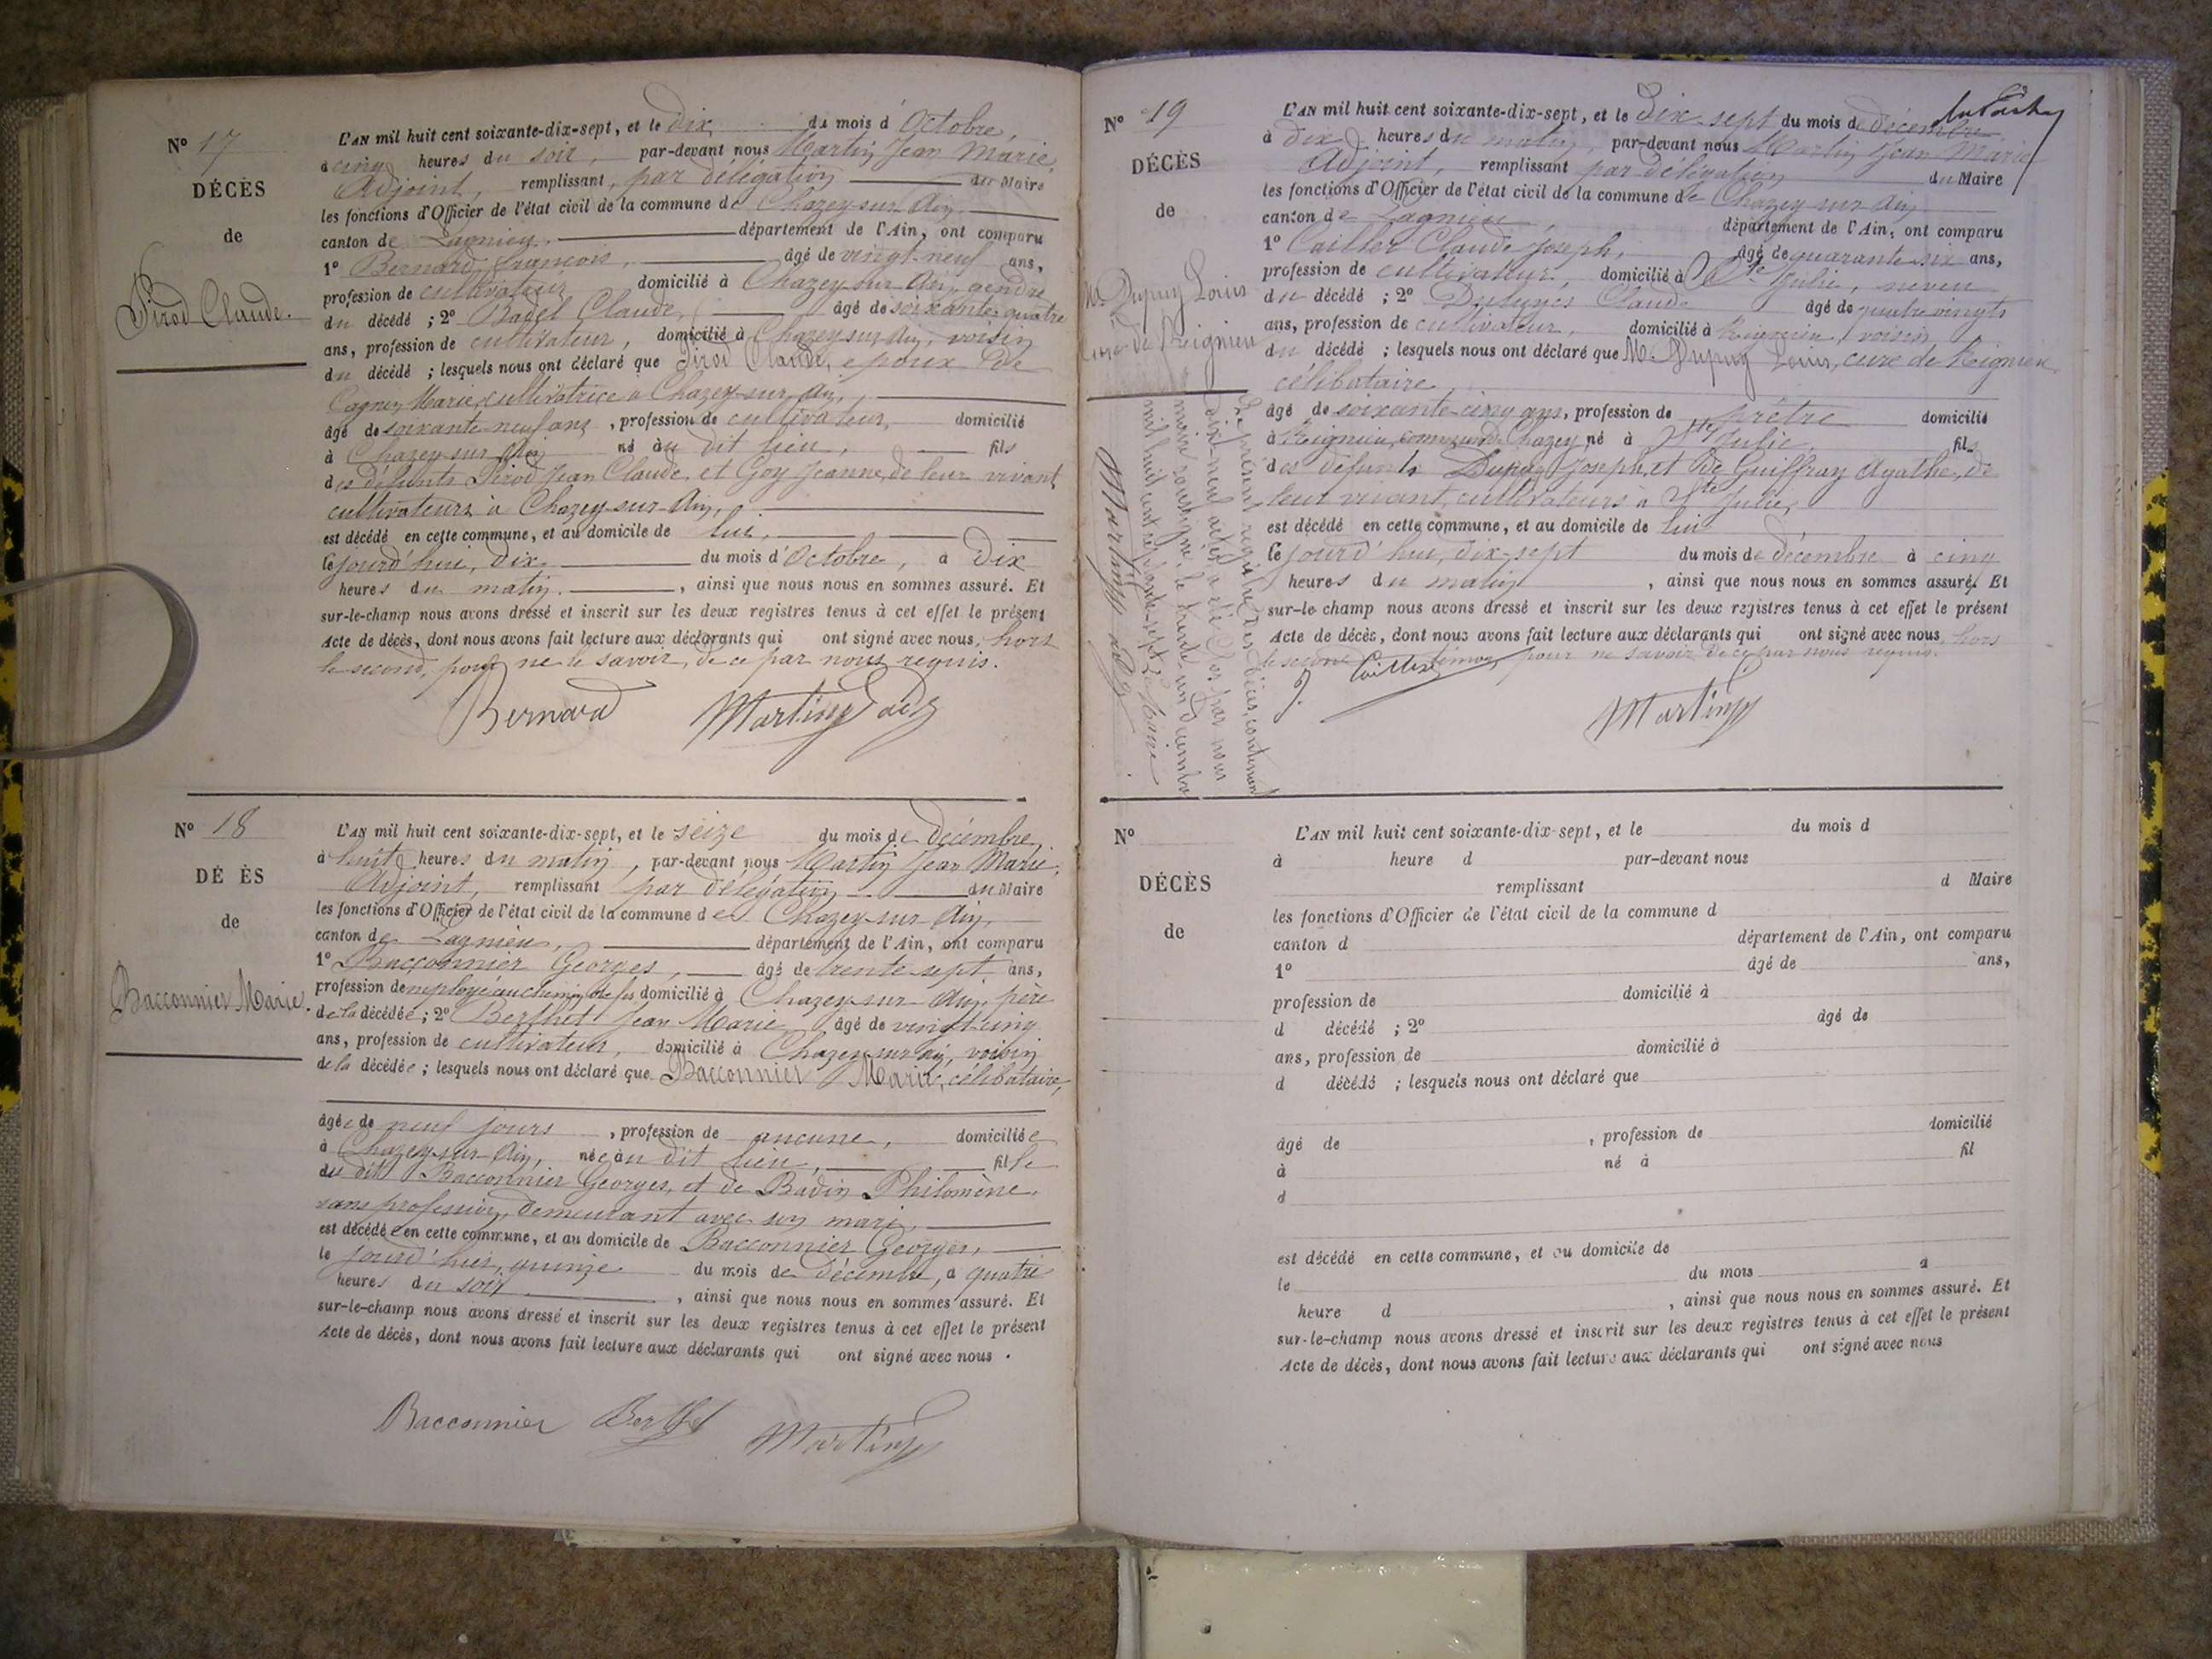 N° 17
DÉCÈS
de
Pirod Claude.
L'AN mil huit cent soixante-dix-sept, et le dix du mois d'Octobre,
à cinq heures du soir, par-devant nous Martin Jean Marie,
Adjoint, remplissant, par délégation du Maire
les fonctions d'Officier de l'état civil de la commune de Chazey-sur-Ain
canton de Lagnieu, département de l'Ain, ont comparu
1° Bernard François, âgé de vingt-neuf ans,
profession de cultivateur domicilié à Chazey-sur-Ain, gendre
du décédé ; 2° Badel Claude, âgé de soixante quatre
ans, profession de cultivateur, domicilié à Chazey-sur-Ain, voisin
du décédé ; lesquels nous ont déclaré que Pirod Claude, époux de
Cagnin Marie, cultivatrice à Chazey-sur-Ain,
âgé de soixante-neuf ans, profession de cultivateur, domicilié
à Chazey-sur-Ain né au dit lieu, fils
des défunts Pirod Jean Claude et Goy Jeanne, de leur vivant
cultivateurs à Chazey-sur-Ain,
est décédé en cette commune, et au domicile de lui,
le jourd'hui, dix du mois d'Octobre, à dix
heures du matin, ainsi que nous nous en sommes assuré. Et
sur-le-champ nous avons dressé et inscrit sur les deux registres tenus à cet effet le présent
Acte de décès, dont nous avons fait lecture aux déclarants qui ont signé avec nous, hors
le second, pour ne le savoir, de ce par nous requis.
Bernard Martin adj
N° 18
DÉ ÈS
de
Bacconnier Marie.
L'AN mil huit cent soixante-dix-sept, et le seize du mois de décembre,
à huit heures du matin, par-devant nous Martin Jean Marie,
Adjoint, remplissant par délégation du Maire
les fonctions d'Officier de l'état civil de la commune de Chazey-sur-Ain,
canton de Lagnieu, département de l'Ain, ont comparu
1° Bacconnier Georges, âgé de trente-sept ans,
profession d'employé au chemin de fer domicilié à Chazey-sur-Ain, père
de la décédée ; 2° Berthet Jean Marie âgé de vingt cinq
ans, profession de cultivateur, domicilié à Chazey-sur-Ain, voisin
de la décédée ; lesquels nous ont déclaré que Bacconnier Marie, célibataire,
âgée de neuf jours, profession de aucune, domiciliée
à Chazey-sur-Ain, née au dit lieu, fille
du dit Bacconnier Georges, et de Badin Philomène,
sans profession, demeurant avec son mari,
est décédée en cette commune, et au domicile de Bacconnier Georges,
le jourd'hui, quinze du mois de décembre, à quatre
heures du soir, ainsi que nous nous en sommes assuré. Et
sur-le-champ nous avons dressé et inscrit sur les deux registres tenus à cet effet le présent
Acte de décès, dont nous avons fait lecture aux déclarants qui ont signé avec nous.
Bacconnier Berthet Martin
N° 19
DÉCÈS
de
Mr Dupuy Louis
Curé de Reignieu
L'AN mil huit cent soixante-dix-sept, et le dix-sept du mois de décembre
à dix heures du matin, par-devant nous Martin Jean Marie
Adjoint, remplissant par délégation du Maire
les fonctions d'Officier de l'état civil de la commune de Chazey-sur-Ain
canton de Lagnieu département de l'Ain, ont comparu
1° Caillet Claude Joseph, âgé de quarante-six ans,
profession de cultivateur, domicilié à Ste Julie, neveu
du décédé ; 2° Claude âgé de quatre vingts
ans, profession de cultivateur, domicilié à Reignieu, voisin
du décédé ; lesquels nous ont déclaré que Mr Dupuy Louis, curé de Reignieu,
célibataire,
âgé de soixante-cinq ans, profession de prêtre domicilié
à Reignieu, commune de Chazey né à Ste Julie, fils
des défunts Dupuy Joseph et De Guiffray Agathe, de
leur vivant, cultivateurs à Ste Julie,
est décédé en cette commune, et au domicile de lui
le jourd'hui, dix-sept du mois de décembre à cinq
heures du matin, ainsi que nous nous en sommes assuré. Et
sur-le-champ nous avons dressé et inscrit sur les deux registres tenus à cet effet le présent
Acte de décès, dont nous avons fait lecture aux déclarants qui ont signé avec nous, hors
le second témoin, pour ne savoir de ce par nous requis.
Caillet
Martin
Le présent registre des décès, contenant
dix-neuf actes a été clos par nous
maire soussigné, le trente un décembre
mil huit cent soixante-dix-sept. Le Maire
Martin adj
N°
DÉCÈS
de
L'AN mil huit cent soixante-dix-sept, et le du mois d
à heure d par-devant nous
remplissant d Maire
les fonctions d'Officier de l'état civil de la commune d
canton d département de l'Ain, ont comparu
1° âgé de ans,
profession de domicilié à
d décédé ; 2° âgé de
ans, profession de domicilié à
d décédé ; lesquels nous ont déclaré que
âgé de , profession de domicilié
à né à fil
d
est décédé en cette commune, et au domicile de
le du mois à
heure d , ainsi que nous nous en sommes assuré. Et
sur-le-champ nous avons dressé et inscrit sur les deux registres tenus à cet effet le présent
Acte de décès, dont nous avons fait lecture aux déclarants qui ont signé avec nous